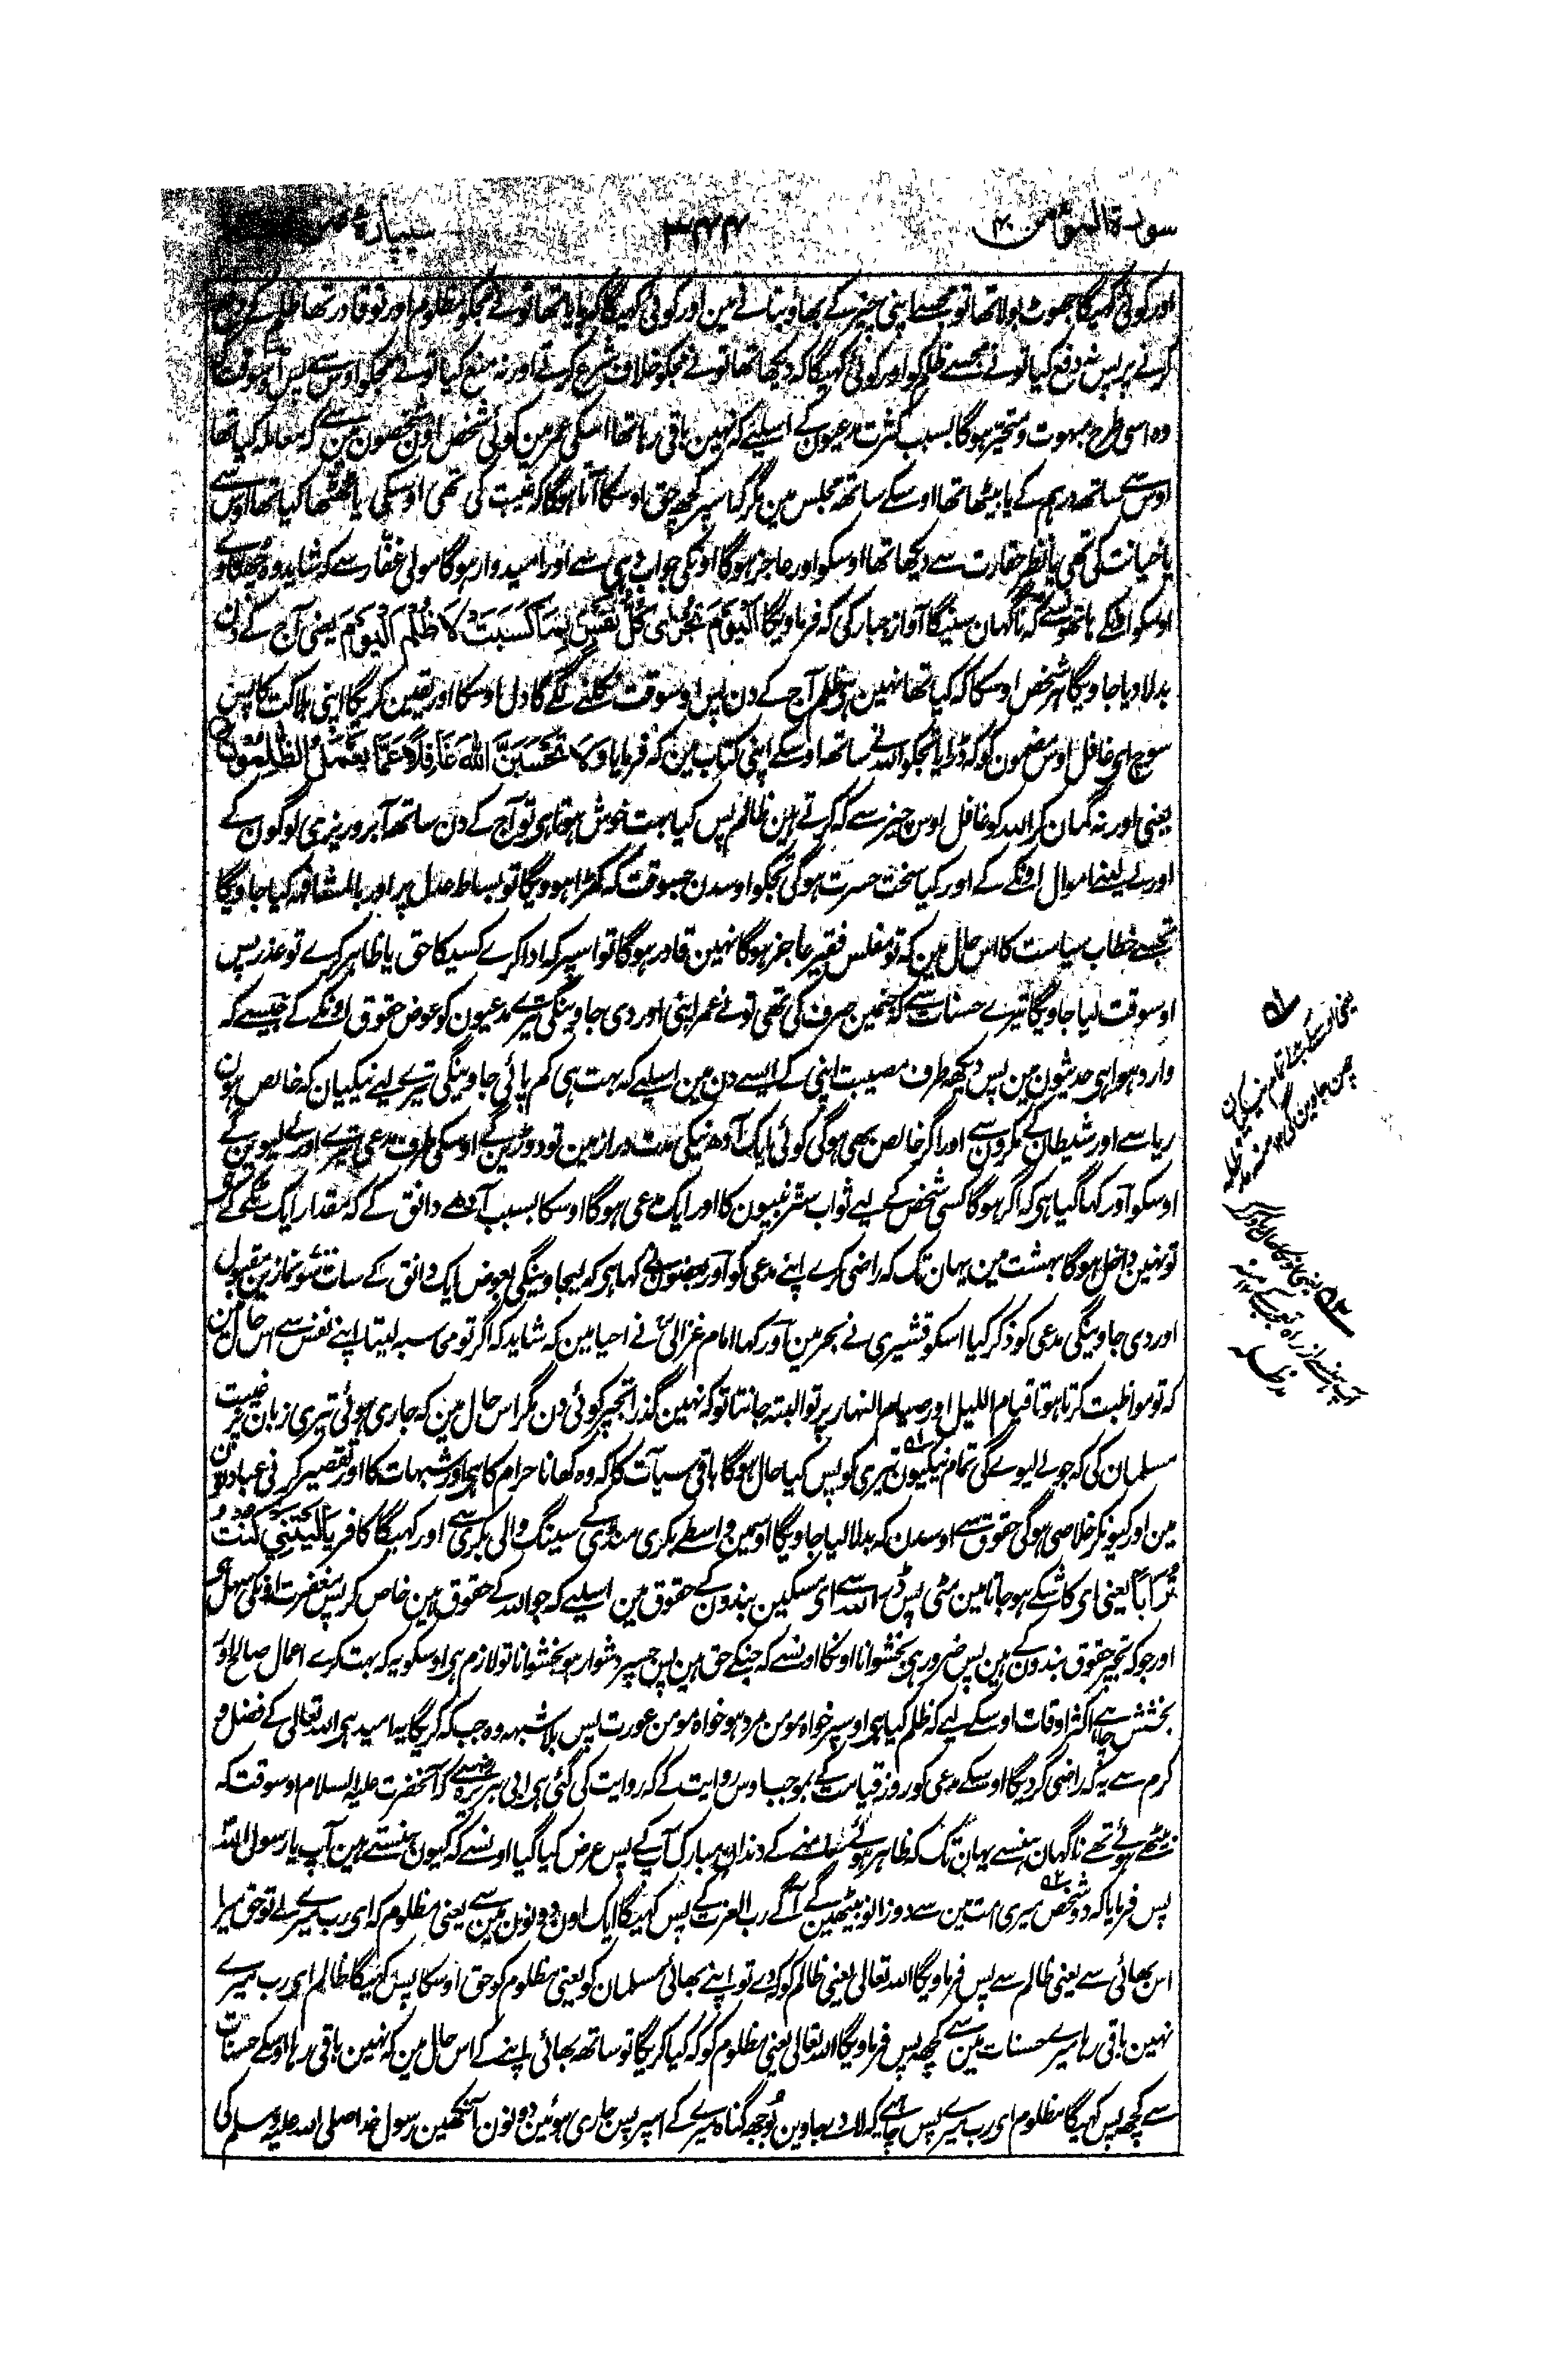 سورة المؤمن ۴۰
۳۴۴
سیپارہ
اور کوئی کہیگا جھوٹ بولا تھا تو مجھسے اپنی چیز کے بھاؤ بتانے مین اور کوئی کہیگا کہ پایا تھا تونے مجکو مظلوم اور تو قادر تھا ظلم کے دفع
کرنے پر پس نہ دفع کیا تونے مجھسے ظلم کو اور کوئی کہیگا کہ دیکھا تھا تونے مجکو خلاف شرع کرتے اور نہ منع کیا تونے مجکو اوس سے پس اوسوقت کا
وہ اسی طرح مبہوت و متحیر ہوگا بسبب کثرت مدعیون کے اسلیے کہ نہین باقی رہا تھا اسکی عمر مین کوئی شخص اون شخصون مین سے کہ معاملہ کیا تھا
اوس سے ساتھ درہم کے یا بیٹھا تھا اوسکے ساتھ مجلس مین مگر کہ اسپر کچھ حق اوسکا آتا ہوگا کہ غیبت کی تھی اوسکی یا ٹھٹھا کیا تھا اوس سے
یا خیانت کی تھی یا نظر حقارت سے دیکھا تھا اوسکو اور عاجز ہوگا اونکی جواب دہی سے اور امیدوار ہوگا مولی غفار سے کہ شاید وہ چھڑاوے
اوسکو اونکے ہاتھو نسے کہ ناگہان سنیگا آواز جبار کی کہ فرماویگا اَلْيَوْمَ تُجْزٰى كُلُّ نَفْسٍ بِمَا كَسَبَتْ لَا ظُلْمَ الْيَوْمَ یعنی آج کے دن
بدلا دیا جاویگا ہر شخص اوسکا کہ کیا تھا نہین ہی ظلم آج کے دن پس اوسوقت نکلنے لگے گا دل اوسکا اور یقین کریگا اپنی ہلاکت کا پس
سوچ ای غافل اوس مضمون کو کہ ڈرایا تجکو اللہ نے ساتھ اوسکے اپنی کتاب مین کہ فرمایا وَلَا تَحْسَبَنَّ اللّٰهَ غَافِلًا عَمَّا يَعْمَلُ الظّٰلِمُوْنَ
یعنی اور نہ گمان کر اللہ کو غافل اوس چیز سے کہ کرتے ہین ظالم پس کیا بہت خوش ہوتا ہی تو آج کے دن ساتھ آبروریزی لوگون کے
اور لے لینے اموال اونکے کے اور کیا سخت حسرت ہوگی تجکو اوسدن جسوقت کہ کھڑا ہوویگا تو بساط عدل پر اور بالمشافہہ کیا جاویگا
تجھسے خطاب سیاست کا اس حال مین کہ تو مفلس فقیر عاجز ہوگا نہین قادر ہوگا تو اسپر کہ ادا کرے کسیکا حق یا ظاہر کرے تو عذر پس
اوسوقت لیا جاویگا تیرے حسنات سے کہ جنمین صرف کی تھی تونے عمر اپنی اور دی جاوینگی تیرے مدعیون کو عوض حقوق اونکے کے جیسے کہ
وارد ہوا ہی حدیثون مین پس دیکھ طرف مصیبت اپنی کے ایسے دن مین اسلیے کہ بہت ہی کم پائی جاوینگی تیرے لیے نیکیان کہ خالص ہون
ریا سے اور شیطان کے مکرون سے اور اگر خالص بھی ہوگی کوئی ایک آدھ نیکی مدت دراز مین تو دوڑینگے اوسکی طرف مدعی تیرے اور لے لیوینگے
اوسکو اور کہا گیا ہی کہ اگر ہوگا کسی شخص کے لیے ثواب ستر نبیون کا اور ایک مدعی ہوگا اوسکا بسبب آدھے دانق کے کہ مقدار ایک
تو نہین داخل ہوگا بہشت مین یہان تک کہ راضی کرے اپنے مدعی کو اور بعضون نے کہا ہی کہ لیجاوینگی بعوض ایک دانق کے سات سو نمازین مقبول
اور دی جاوینگی مدعی کو ذکر کیا اسکو قشیری نے بحر مین اور کہا امام غزالیؒ نے احیا مین کہ شاید کہ اگر تو محاسبہ لیتا اپنے نفس سے اس حال مین
کہ تو مواظبت کرتا ہوتا قیام اللیل اور صیام النہار پر تو البتہ جانتا تو کہ نہین گذرا تجھپر کوئی دن مگر اس حال مین کہ جاری ہوئی تیری زبان پر غیبت
مسلمان کی کہ جو لے لیوے گی تمام نیکیون تیری کو پس کیا حال ہوگا باقی سیآت کا کہ وہ کھانا حرام کا ہی اور شبہات کا اور تقصیر کرنی عبادتون
مین اور کیونکر خلاصی ہوگی حقوق سے اوسدن کہ بدلا لیا جاویگا اوسمین واسطے بکری منڈی کے سینگ والی بکری سے اور کہیگا کافر يٰلَيْتَنِي كُنْتُ
تُرَابًا یعنی ای کاشکے ہو جاتا مین مٹی پس ڈر اللہ سے ای مسکین بندون کے حقوق مین اسلیے کہ جو اللہ کے حقوق ہین خاص کر پس مغفرت اونکی سہل ہی
اور جو کہ تجھپر حقوق بندون کے ہین پس ضرور ہی بخشوانا اونکا اونسے کہ جنکے حق ہین پس جسپر دشوار ہو بخشوانا تو لازم ہی اوسکو یہ کہ بہت کرے اعمال صالح اور
بخشش چاہے اکثر اوقات اوسکے لیے کہ ظلم کیا ہی اوسپر خواہ مومن مرد ہو خواہ مومن عورت پس بلا شبہہ وہ جب کہ کریگا یہ امید ہی اللہ تعالی کے فضل و
کرم سے یہ کہ راضی کردیگا اوسکے مدعی کو روز قیامت کے بموجب اوس روایت کے کہ روایت کی گئی ہی ابی ہریرہؓ سے کہ آنحضرت علیہ السلام اوسوقت کہ
بیٹھے ہوئے تھے ناگہان ہنسے یہان تک کہ ظاہر ہوئے سامنے کے دندان مبارک آپ کے پس عرض کیا گیا اونسے کہ کیون ہنستے ہین آپ یا رسول اللہ
پس فرمایا کہ دو شخص میری امت مین سے دوزانو بیٹھین گے آگے رب العزت کے پس کہیگا ایک اون دونون مین سے یعنی مظلوم کہ ای رب میرے لے تو حق میرا
اس بھائی سے یعنی ظالم سے پس فرماویگا اللہ تعالی یعنی ظالم کو کہ دے تو اپنے بھائی مسلمان کو یعنی مظلوم کو حق اوسکا پس کہیگا ظالم ای رب میرے
نہین باقی رہا میرے حسنات مین سے کچھ پس فرماویگا اللہ تعالی یعنی مظلوم کو کہ کیا کریگا تو ساتھ بھائی اپنے کے اس حال مین کہ نہین باقی رہا اوسکے حسنات
سے کچھ پس کہیگا مظلوم ای رب میرے پس چاہیے کہ لادے جاوین بوجھ گناہ میرے کے اسپر پس جاری ہوئین دونون آنکھین رسول خدا صلی اللہ علیہ وسلم کی